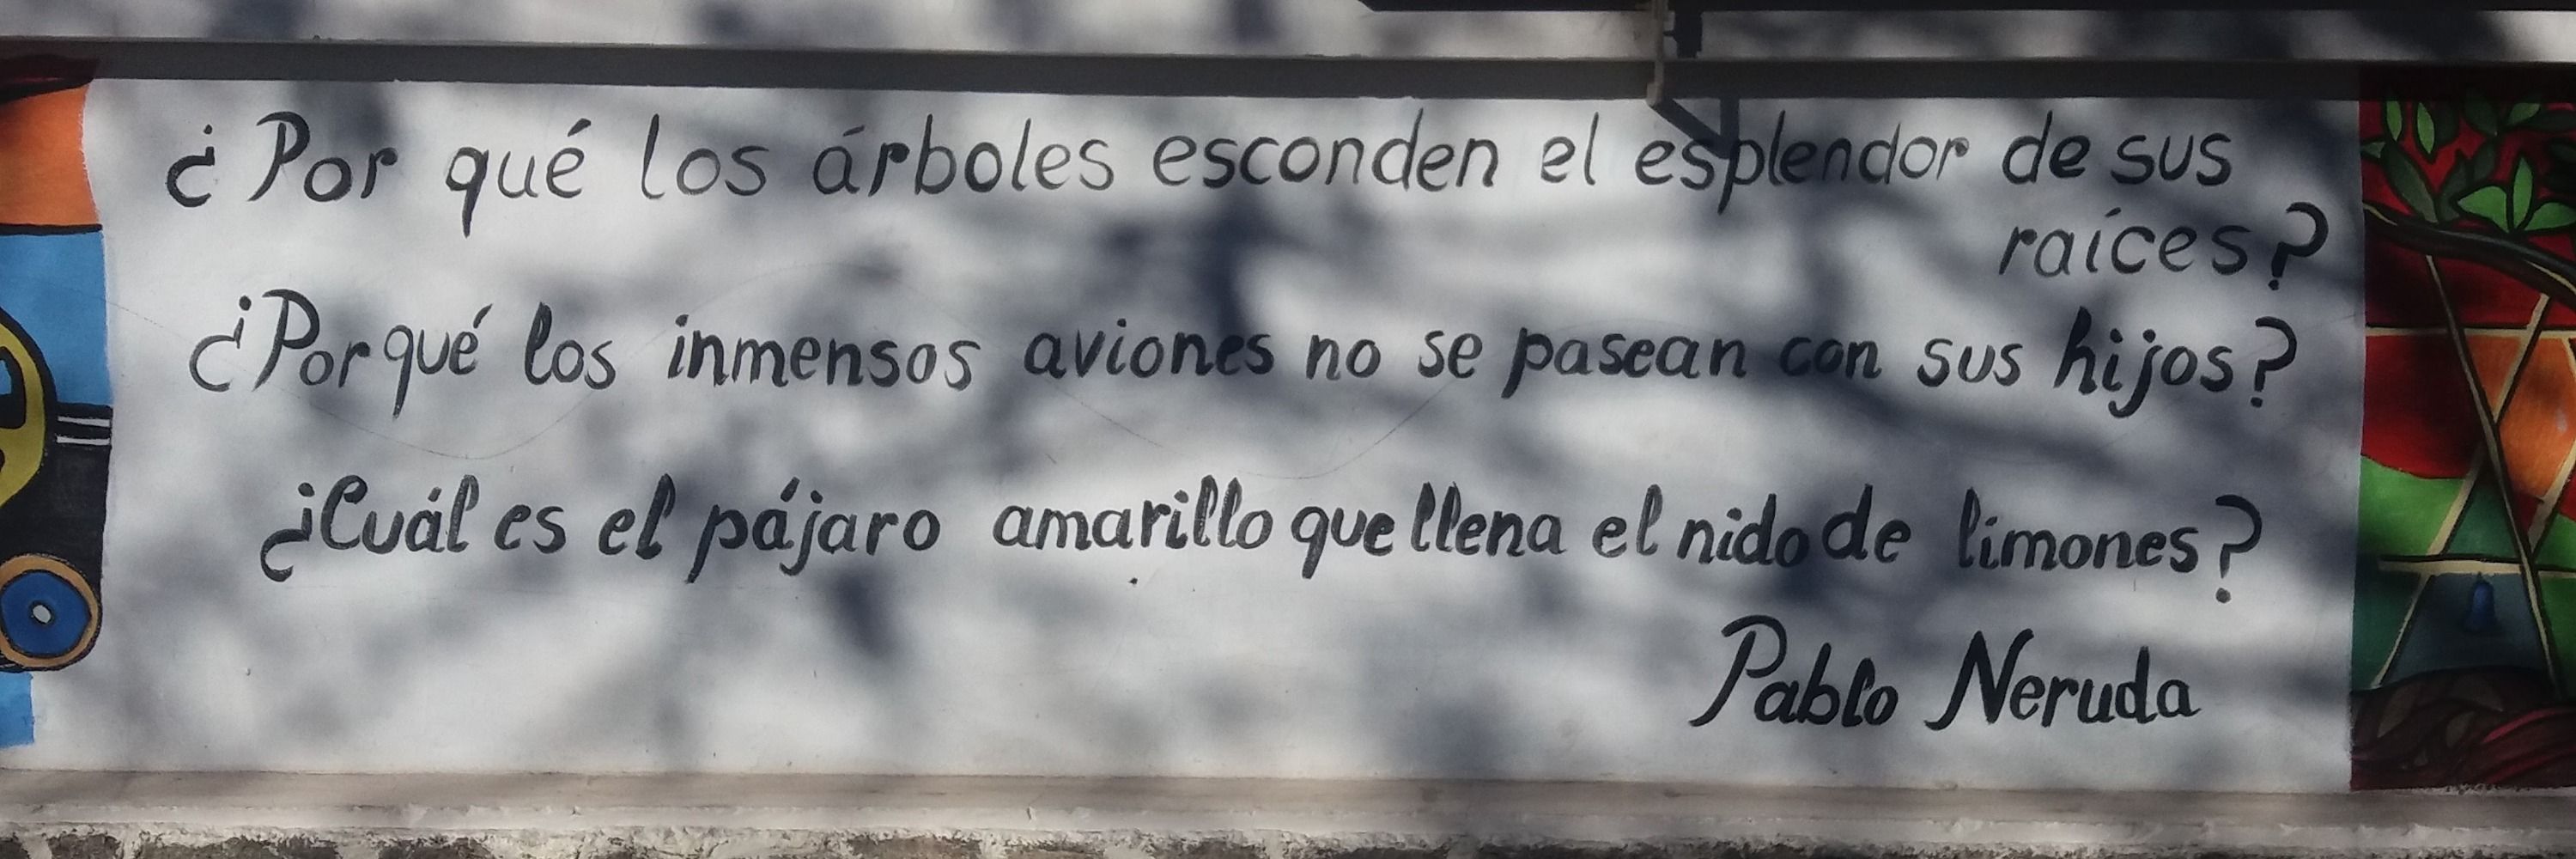 ¿Por qué los árboles esconden el esplendor de sus
raíces?
¿Por qué los inmensos aviones no se pasean con sus hijos?
¿Cuál es el pájaro amarillo que llena el nido de limones?
Pablo Neruda